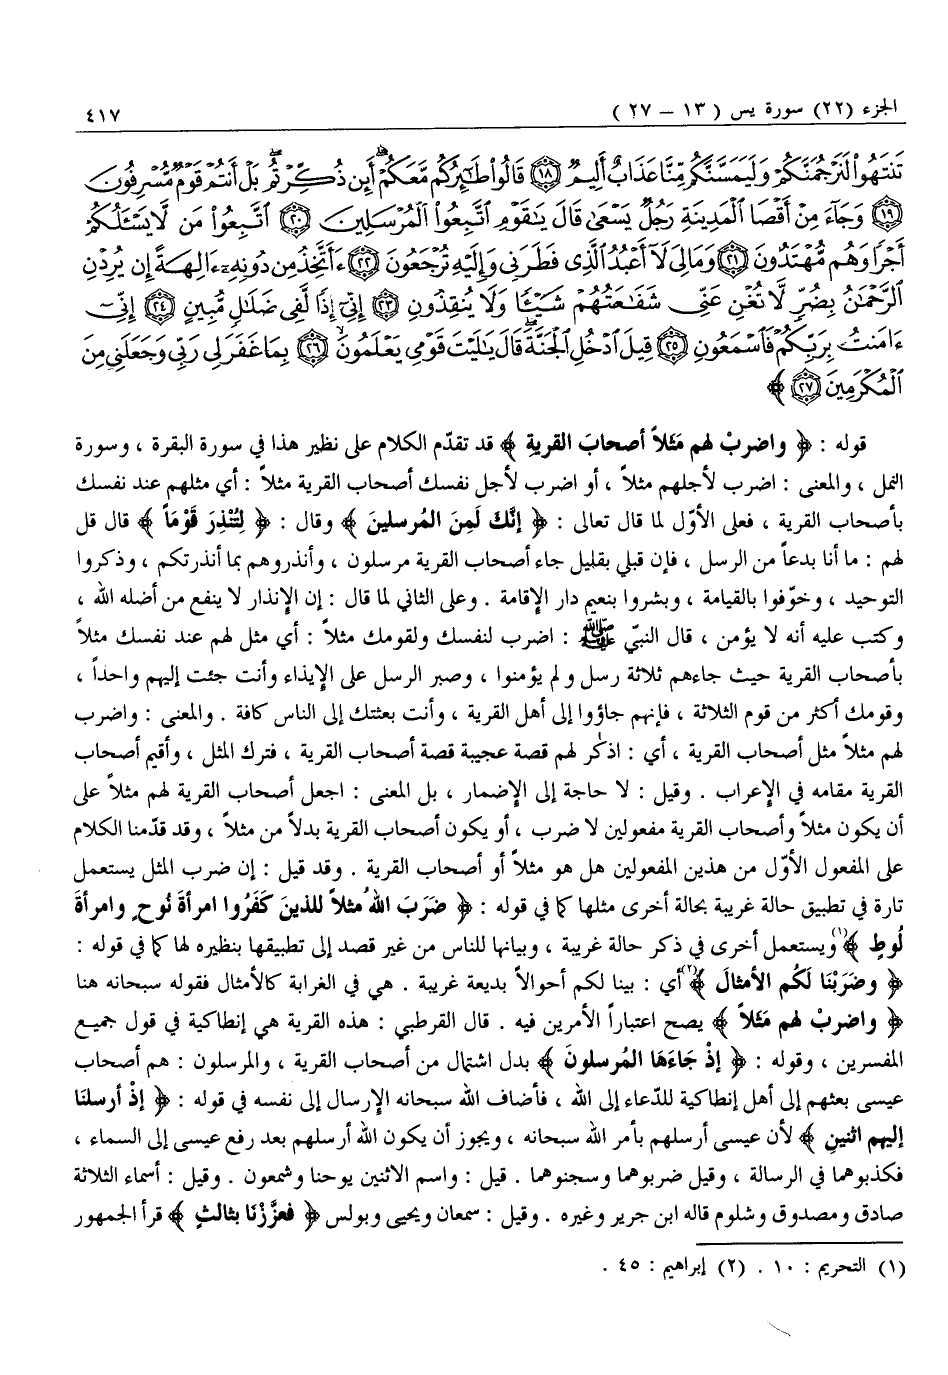 الجزء (٢٢) سورة يس ( ١٣ – ٢٧ ) ٤١٧
تَنتَهُوا۟ لَنَرْجُمَنَّكُمْ وَلَيَمَسَّنَّكُم مِّنَّا عَذَابٌ أَلِيمٌ ١٨ قَالُوا۟ طَـٰٓئِرُكُم مَّعَكُمْ أَئِن ذُكِّرْتُم بَلْ أَنتُمْ قَوْمٌ مُّسْرِفُونَ
١٩ وَجَآءَ مِنْ أَقْصَا ٱلْمَدِينَةِ رَجُلٌ يَسْعَىٰ قَالَ يَـٰقَوْمِ ٱتَّبِعُوا۟ ٱلْمُرْسَلِينَ ٢٠ ٱتَّبِعُوا۟ مَن لَّا يَسْـَٔلُكُمْ
أَجْرًا وَهُم مُّهْتَدُونَ ٢١ وَمَالِىَ لَآ أَعْبُدُ ٱلَّذِى فَطَرَنِى وَإِلَيْهِ تُرْجَعُونَ ٢٢ ءَأَتَّخِذُ مِن دُونِهِۦٓ ءَالِهَةً إِن يُرِدْنِ
ٱلرَّحْمَـٰنُ بِضُرٍّ لَّا تُغْنِ عَنِّى شَفَـٰعَتُهُمْ شَيْـًٔا وَلَا يُنقِذُونِ ٢٣ إِنِّىٓ إِذًا لَّفِى ضَلَـٰلٍ مُّبِينٍ ٢٤ إِنِّىٓ
ءَامَنتُ بِرَبِّكُمْ فَٱسْمَعُونِ ٢٥ قِيلَ ٱدْخُلِ ٱلْجَنَّةَ قَالَ يَـٰلَيْتَ قَوْمِى يَعْلَمُونَ ٢٦ بِمَا غَفَرَ لِى رَبِّى وَجَعَلَنِى مِنَ
ٱلْمُكْرَمِينَ ٢٧ ﴾
قوله : ﴿ واضربْ لهم مَثَلاً أصحابَ القريةِ ﴾ قد تقدّم الكلام على نظير هذا في سورة البقرة ، وسورة
النمل ، والمعنى : اضرب لأجلهم مثلاً ، أو اضرب لأجل نفسك أصحاب القرية مثلاً : أي مثلهم عند نفسك
بأصحاب القرية ، فعلى الأوّل لما قال تعالى : ﴿ إنَّكَ لَمِنَ المُرسلينَ ﴾ وقال : ﴿ لِتُنْذِرَ قَوْمَاً ﴾ قال قل
لهم : ما أنا بدعاً من الرسل ، فإن قبلي بقليل جاء أصحاب القرية مرسلون ، وأنذروهم بما أنذرتكم ، وذكروا
التوحيد ، وخوّفوا بالقيامة ، وبشروا بنعيم دار الإقامة . وعلى الثاني لما قال : إن الإنذار لا ينفع من أضله الله ،
وكتب عليه أنه لا يؤمن ، قال النبيّ ﷺ : اضرب لنفسك ولقومك مثلاً : أي مثل لهم عند نفسك مثلاً
بأصحاب القرية حيث جاءهم ثلاثة رسل ولم يؤمنوا ، وصبر الرسل على الإيذاء وأنت جئت إليهم واحداً ،
وقومك أكثر من قوم الثلاثة ، فإنهم جاؤوا إلى أهل القرية ، وأنت بعثتك إلى الناس كافة . والمعنى : واضرب
لهم مثلاً مثل أصحاب القرية ، أي : اذكُر لهم قصة عجيبة قصة أصحاب القرية ، فترك المثل ، وأقيم أصحاب
القرية مقامه في الإعراب . وقيل : لا حاجة إلى الإضمار ، بل المعنى : اجعل أصحاب القرية لهم مثلاً على
أن يكون مثلاً وأصحاب القرية مفعولين لا ضرب ، أو يكون أصحاب القرية بدلاً من مثلاً ، وقد قدّمنا الكلام
على المفعول الأوّل من هذين المفعولين هل هو مثلاً أو أصحاب القرية . وقد قيل : إن ضرب المثل يستعمل
تارة في تطبيق حالة غريبة بحالة أخرى مثلها كما في قوله : ﴿ ضَرَبَ اللهُ مثلاً للذينَ كَفَرُوا امرأةَ نُوحٍ وامرأةَ
لُوطٍ ﴾(١) ويستعمل أخرى في ذكر حالة غريبة ، وبيانها للناس من غير قصد إلى تطبيقها بنظيره لها كما في قوله :
﴿ وضَرَبْنَا لَكُم الأمثالَ ﴾(٢) أي : بينا لكم أحوالاً بديعة غريبة . هي في الغرابة كالأمثال فقوله سبحانه هنا
﴿ واضربْ لهم مَثَلاً ﴾ يصح اعتباراً الأمرين فيه . قال القرطبي : هذه القرية هي إنطاكية في قول جميع
المفسرين ، وقوله : ﴿ إذْ جَاءَهَا المُرسلونَ ﴾ بدل اشتمال من أصحاب القرية ، والمرسلون : هم أصحاب
عيسى بعثهم إلى أهل إنطاكية للدّعاء إلى الله ، فأضاف الله سبحانه الإرسال إلى نفسه في قوله : ﴿ إذْ أرسلنَا
إليهم اثنينِ ﴾ لأن عيسى أرسلهم بأمر الله سبحانه ، ويجوز أن يكون الله أرسلهم بعد رفع عيسى إلى السماء ،
فكذبوهما في الرسالة ، وقيل ضربوهما وسجنوهما . قيل : واسم الاثنين يوحنا وشمعون . وقيل : أسماء الثلاثة
صادق ومصدوق وشلوم قاله ابن جرير وغيره . وقيل : سمعان ويحيى وبولس ﴿ فعزَّزْنَا بثالثٍ ﴾ قرأ الجمهور
(١) التحريم : ١٠ . (٢) إبراهيم : ٤٥ .